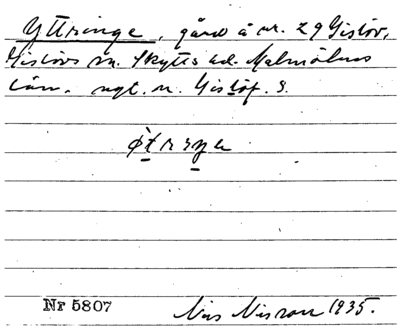 Yttringe, gård å nr. 29 Gislöv,
Gislövs sn. Skytts hd. Malmöhus
län. ngt. n. Gislöf. S.
Nr 5807 Nils Nilsson 1935.